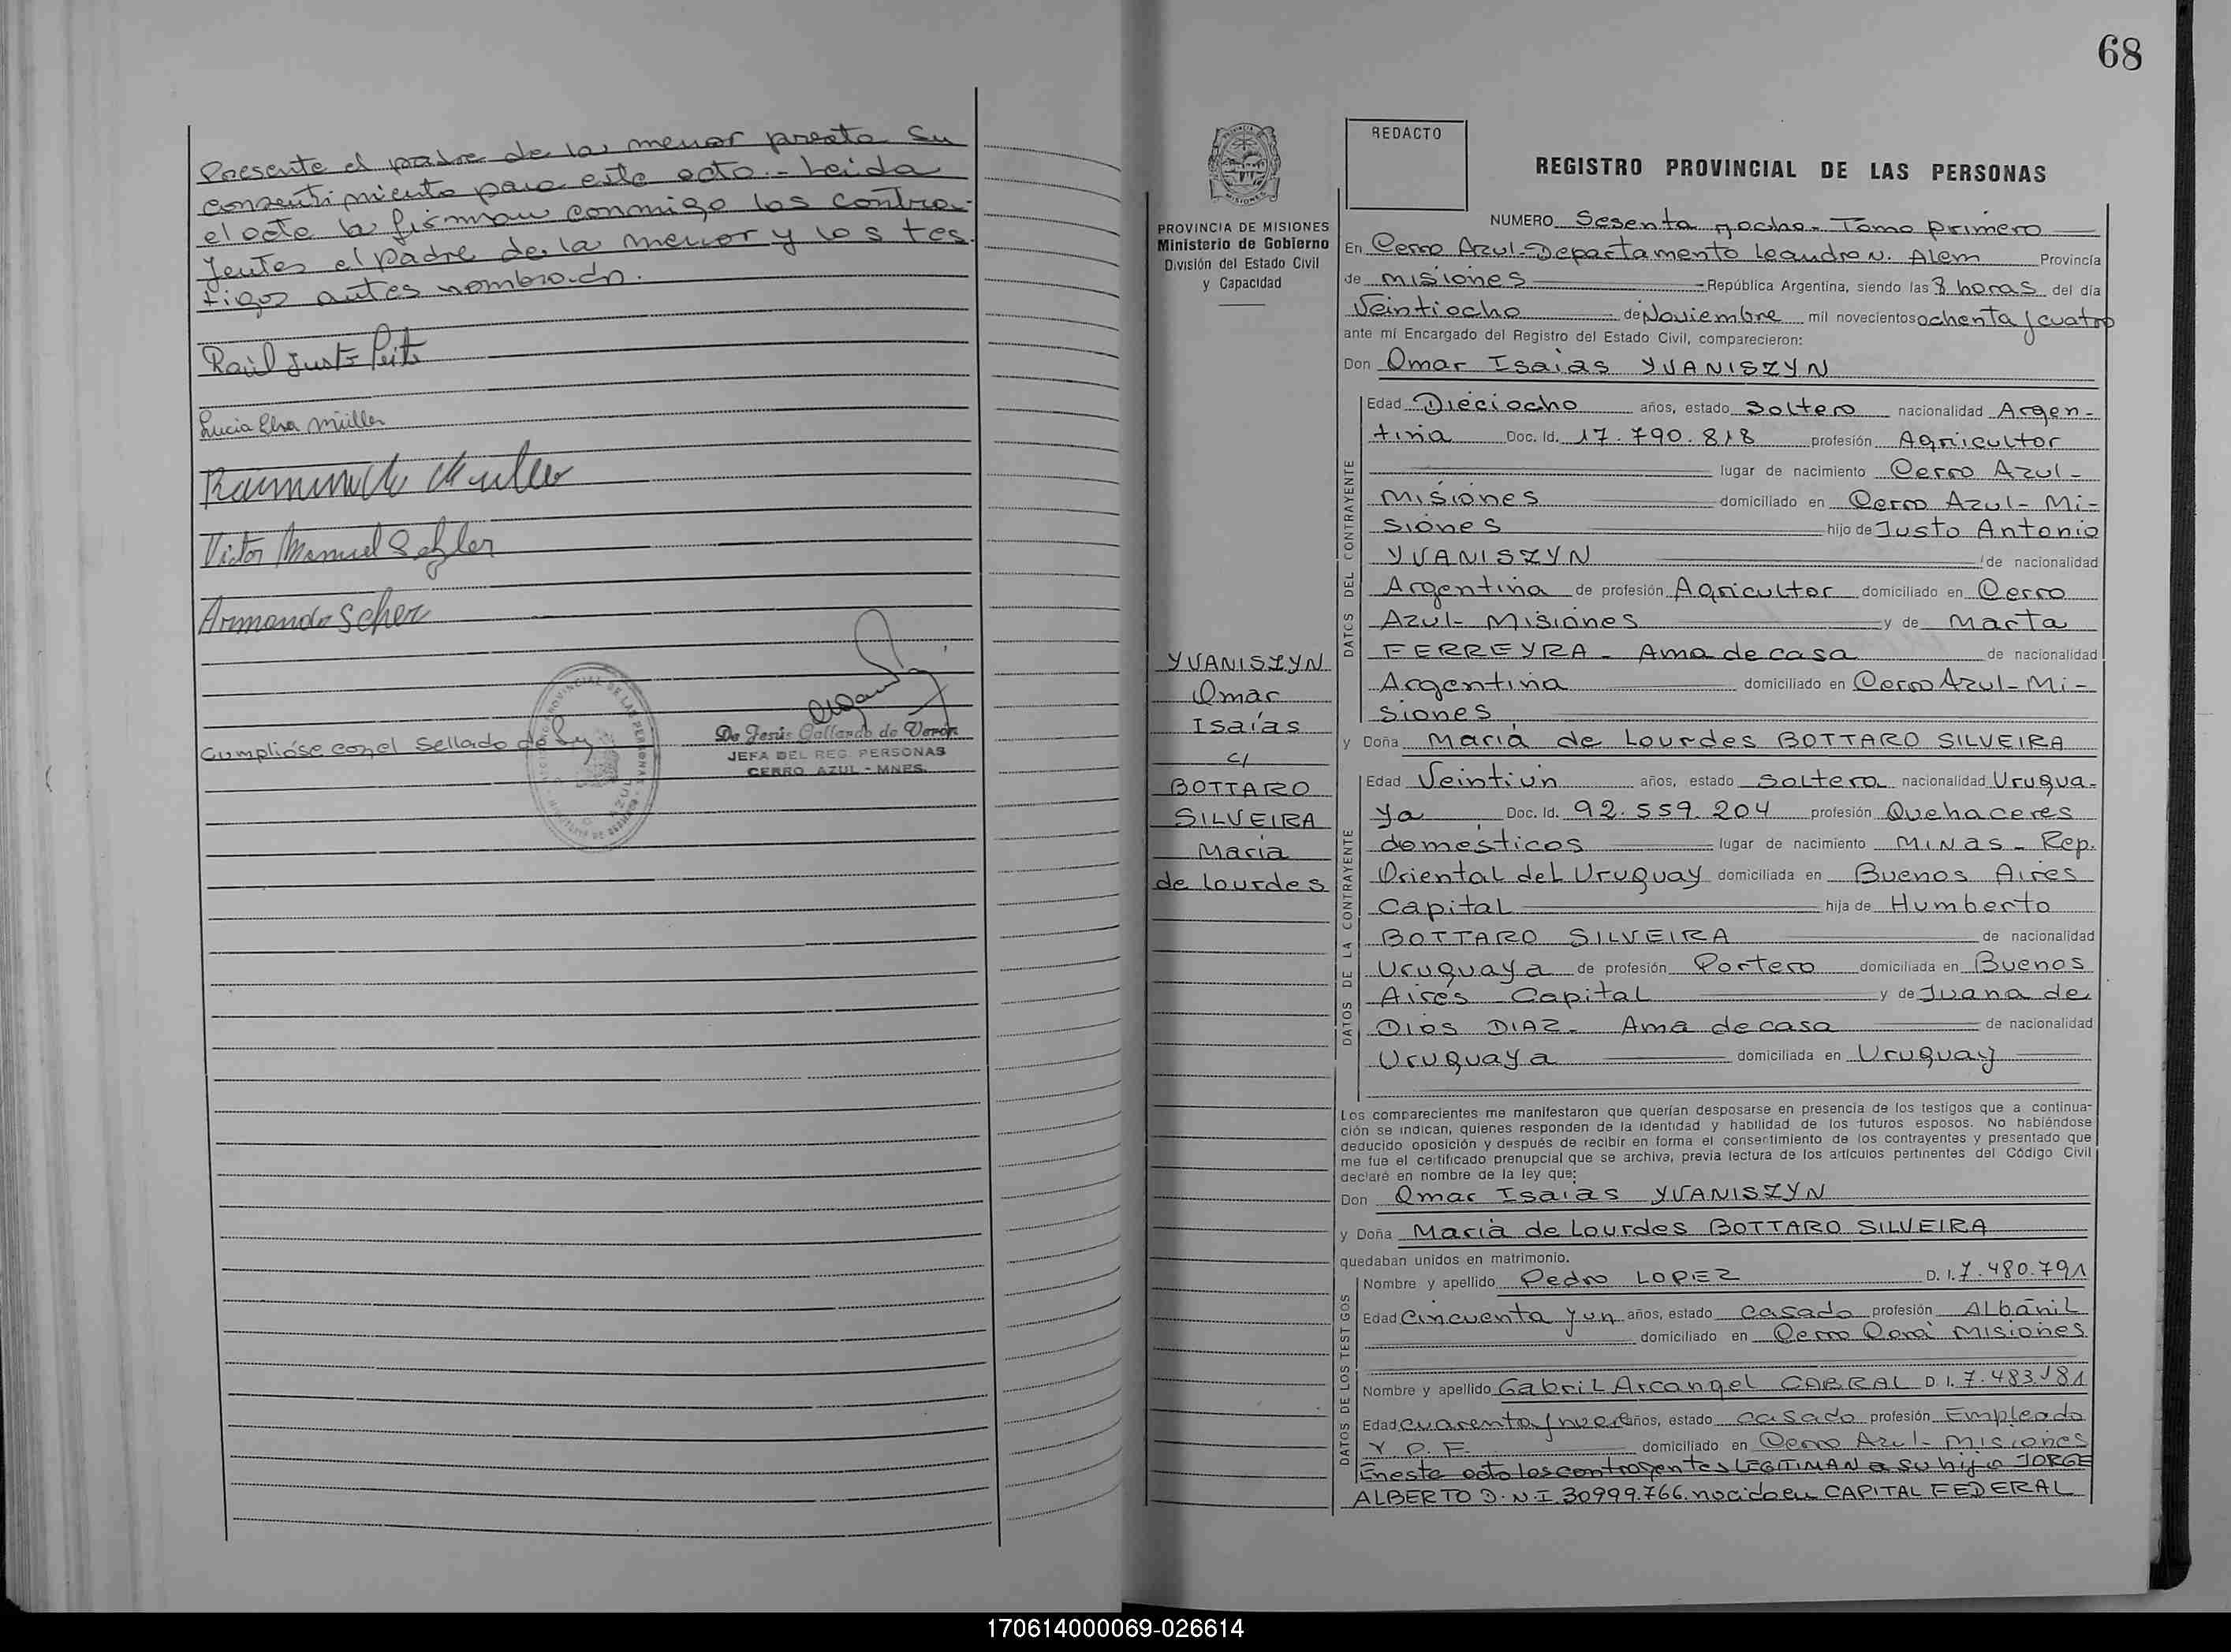 Presente el padre de la menor presta su
consentimiento para este acto.- Leida
el acta la firman conmigo los contra-
yentes el padre de la menor y los tes-
tigos antes nombrado.
Raúl Justo
Lucia Elsa Müller
Victor Manuel
Armando Scher
Cumplióse con el sellado de Ley
De Jesús Gallardo de Verón
JEFA DEL REG. PERSONAS
CERRO AZUL - MNES.
68
PROVINCIA DE MISIONES
Ministerio de Gobierno
División del Estado Civil
y Capacidad
YVANISZYN
Omar
Isaías
c/
BOTTARO
SILVEIRA
Maria
de Lourdes
REDACTO
REGISTRO PROVINCIAL DE LAS PERSONAS
NUMERO Sesenta y ocho - Tomo primero
En Cerro Azul - Departamento Leandro N. Alem Provincia
de Misiones República Argentina, siendo las 8 horas del día
Veintiocho de Noviembre mil novecientos ochenta y cuatro
ante mí Encargado del Registro del Estado Civil, comparecieron:
Don Omar Isaias YVANISZYN
DATOS DEL CONTRAYENTE
Edad Dieciocho años, estado Soltero nacionalidad Argen-
tina Doc. Id. 17.790.818 profesión Agricultor
lugar de nacimiento Cerro Azul -
Misiones domiciliado en Cerro Azul - Mi-
siones hijo de Justo Antonio
YVANISZYN de nacionalidad
Argentina de profesión Agricultor domiciliado en Cerro
Azul - Misiones y de Marta
FERREYRA - Ama de casa de nacionalidad
Argentina domiciliado en Cerro Azul - Mi-
siones
y Doña Maria de Lourdes BOTTARO SILVEIRA
DATOS DE LA CONTRAYENTE
Edad Veintiun años, estado Soltera nacionalidad Urugua-
ya Doc. Id. 92.559.204 profesión Quehaceres
domésticos lugar de nacimiento Minas - Rep.
Oriental del Uruguay domiciliada en Buenos Aires
Capital hija de Humberto
BOTTARO SILVEIRA de nacionalidad
Uruguaya de profesión Portero domiciliada en Buenos
Aires - Capital y de Juana de
Dios DIAZ - Ama de casa de nacionalidad
Uruguaya domiciliada en Uruguay
Los comparecientes me manifestaron que querían desposarse en presencia de los testigos que a continua-
ción se indican, quienes responden de la identidad y habilidad de los futuros esposos. No habiéndose
deducido oposición y después de recibir en forma el consentimiento de los contrayentes y presentado que
me fue el certificado prenupcial que se archiva, previa lectura de los artículos pertinentes del Código Civil
declaré en nombre de la ley que:
Don Omar Isaias YVANISZYN
y Doña Maria de Lourdes BOTTARO SILVEIRA
quedaban unidos en matrimonio.
DATOS DE LOS TESTIGOS
Nombre y apellido Pedro LOPEZ D. I. 7.480.791
Edad Cincuenta y un años, estado Casado profesión Albañil
domiciliado en Cerro Corá Misiones
Nombre y apellido Gabril Arcangel CABRAL D. I. 7.483.181
Edad Cuarenta y nueve años, estado Casado profesión Empleado
Y P. F. domiciliado en Cerro Azul - Misiones
En este acto los contrayentes LEGITIMAN a su hijo JORGE
ALBERTO D.N.I 30999.766. nacido en CAPITAL FEDERAL
170614000069-026614